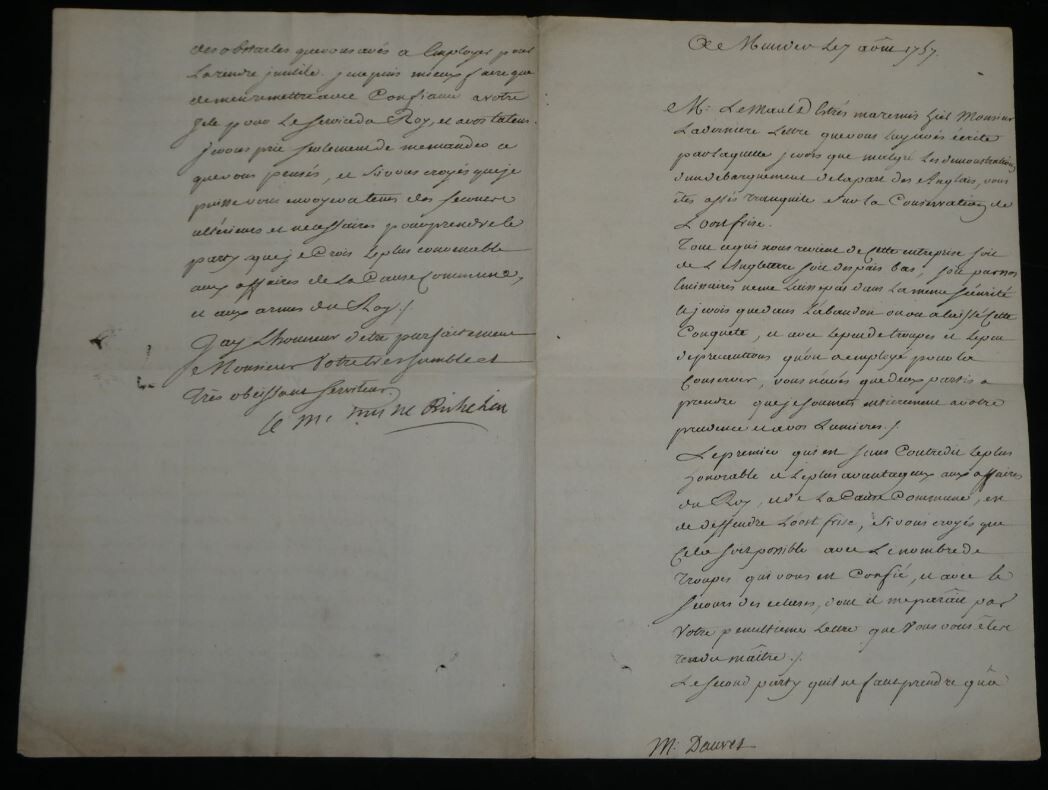 De Munder Le 7 août 1757.
Mr. Le Maal d'Estrés ma remis hier Monsieur
La derniere Lettre que vous luy avés écrite
par laquelle je vois que malgré Les demonstrations
d'un debarquement de la part des Anglais, vous
êtes assés tranquile sur la Conservation de
L'oostfrise.
Tout ce qui nous revient de Cette entreprise soit
de L'Angleterre soit des païs bas, soit par nos
émissaires ne me laisse pas dans La meme sécurité
et je vois que dans L'abandon ou on a laissé Cette
Conquête, et avec le peu de troupes et le peu
de precautions qu'on a employé pour la
Conserver, vous n'avés que deux partis a
prendre que je soumets entierement a votre
prudence et a vos Lumieres./.
Le premier qui est sans Contredit le plus
honorable et le plus avantageux aux affaires
du Roy, et de La Cause Commune, est
de deffendre L'oostfrise, si vous croyés que
Cela soit possible avec Le nombre de
troupes qui vous est Confié, et avec le
secours des ecluses, dont il me paraît par
Votre penultieme Lettre que Vous vous êtes
rendu maître./.
Le second party qu'il ne faut prendre qu'a
Mr. Dauvet
des obstacles que vous avés a Employer pour
La rendre inutile. je ne puis mieux faire que
de m'en remettre avec Confiance a votre
zele pour Le service du Roy, et a vos talens.
je vous prie seulement de me mander ce
que vous pensés, et si vous croyés que je
puisse vous envoyer a tems des secours
ultérieurs et necessaires pour prendre le
party que je Crois le plus convenable
aux affaires de La Cause Commune,
et aux armes du Roy./.
J'ay L'honneur d'etre parfaitement
Monsieur Votre tres humble et
très obeissant serviteur.
Le Mr duc de Richelieu